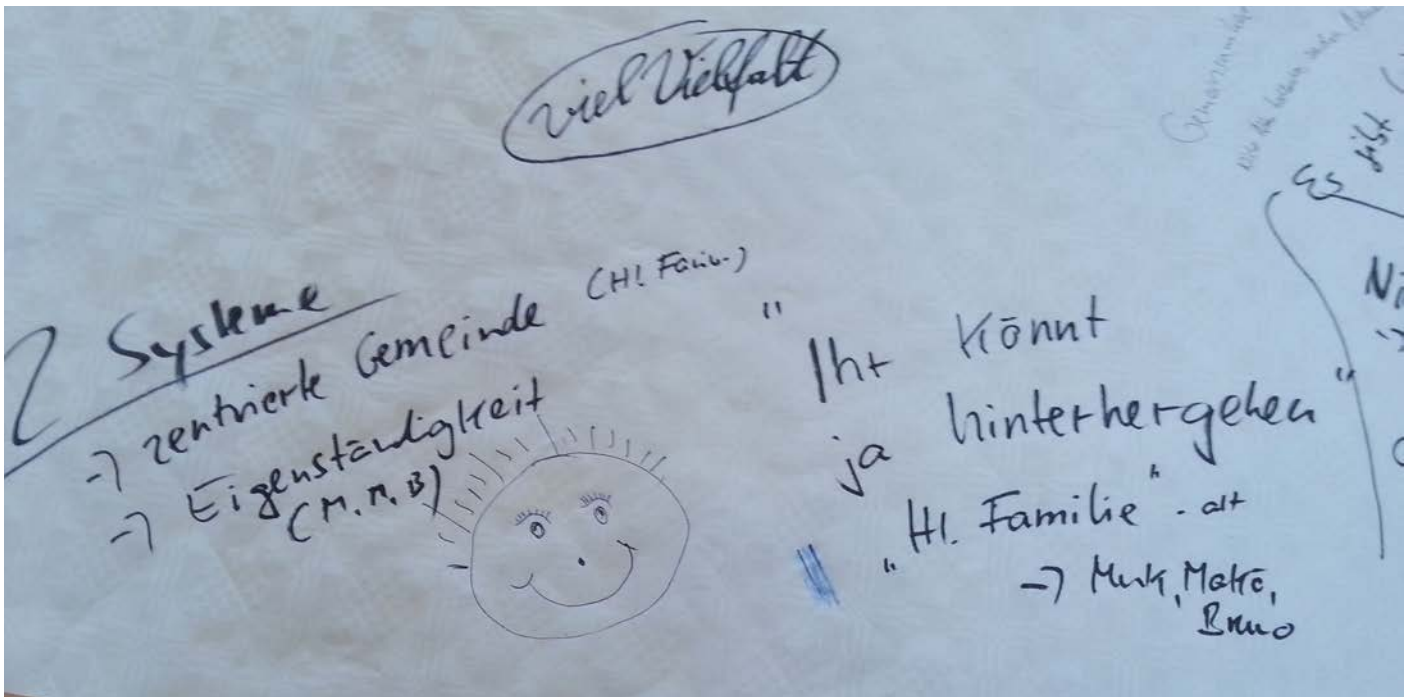 viel Vielfalt
2 Systeme
-> zentrierte Gemeinde (Hl. Fam.)
-> Eigenständigkeit
(M, M, B)
"Ihr könnt
ja hinterhergehen"
"Hl. Familie" - alt
-> Mark, Matth,
Bruno
Es gibt